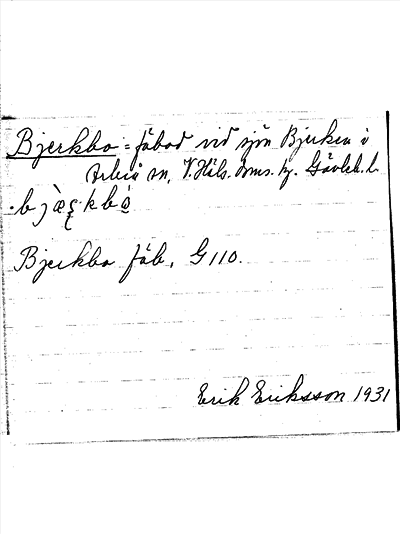 Bjerkbo = fäbod vid sjön Bjerken i
Arbrå sn, V. Häls. doms. hj. Gävleb. l.
bjæ̀ʂkbó
Bjerkbo fäb. G 110.
Erik Eriksson 1931